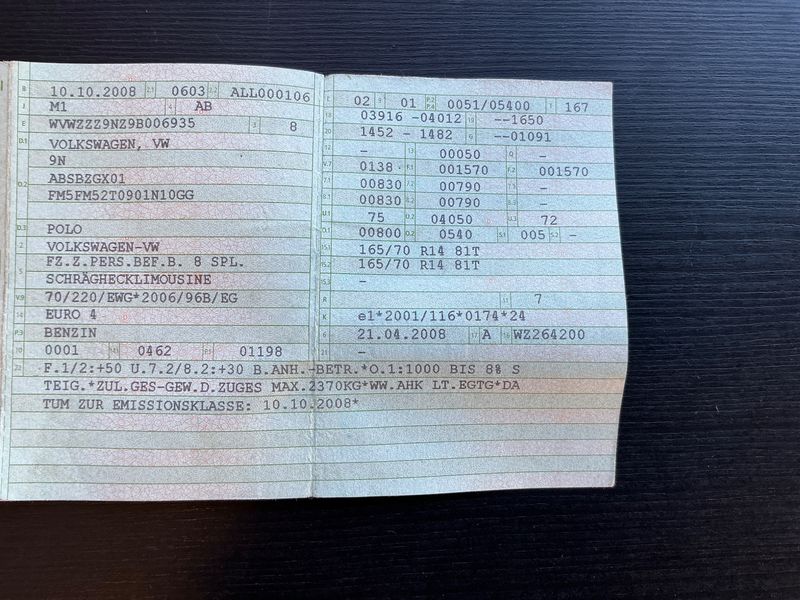 B 10.10.2008 2.1 0603 2.2 ALL000106
J M1 4 AB
E WVWZZZ9NZ9B006935 3 8
D.1 VOLKSWAGEN, VW
9N
D.2 ABSBZGX01
FM5FM52T0901N10GG
D.3 POLO
2 VOLKSWAGEN-VW
5 FZ.Z.PERS.BEF.B. 8 SPL.
SCHRÄGHECKLIMOUSINE
V.9 70/220/EWG*2006/96B/EG
14 EURO 4
P.3 BENZIN
10 0001 14.1 0462 P.1 01198
22 F.1/2:+50 U.7.2/8.2:+30 B.ANH.-BETR.*O.1:1000 BIS 8% S
TEIG.*ZUL.GES-GEW.D.ZUGES MAX.2370KG*WW.AHK LT.EGTG*DA
TUM ZUR EMISSIONSKLASSE: 10.10.2008*
L 02 9 01 P.2 P.4 0051/05400 T 167
18 03916 -04012 19 --1650
20 1452 - 1482 G --01091
12 - 13 00050 Q -
V.7 0138 F.1 001570 F.2 001570
7.1 00830 7.2 00790 7.3 -
8.1 00830 8.2 00790 8.3 -
U.1 75 U.2 04050 U.3 72
O.1 00800 O.2 0540 S.1 005 S.2 -
15.1 165/70 R14 81T
15.2 165/70 R14 81T
15.3 -
R 11 7
K e1*2001/116*0174*24
6 21.04.2008 17 A 16 WZ264200
21 -